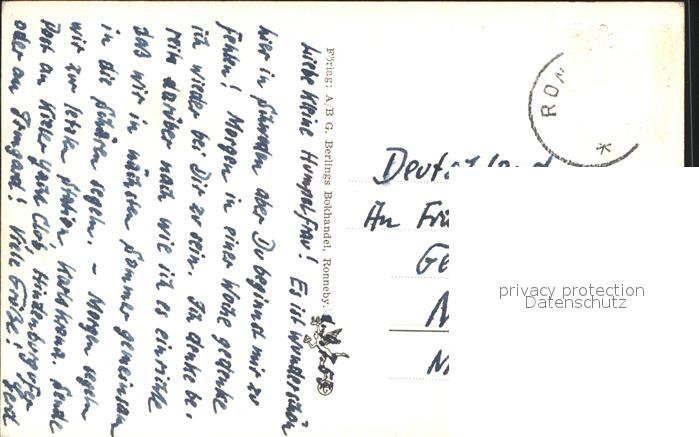 Liebe kleine Humpel-frau! Es ist wunderschön
hier in Schweden aber Du beginnst mir zu
fehlen! Morgen in einer Woche gedenke
ich wieder bei Dir zu sein. Ich denke be-
reits darüber nach wie ich es einrichte
daß wir im nächsten Sommer gemeinsam
in die Schären segeln. – Morgen segeln
wir zur letzten Station, Karlskrona. Sende
Post an Kieler Yacht Club, Hindenburgufer
oder an Irmgard! Viele Grüße! Gerd
Förlag: A/B G. Berlings Bokhandel, Ronneby.
RON
*
Deutschland
An Frä
Ge
N
privacy protection
Datenschutz